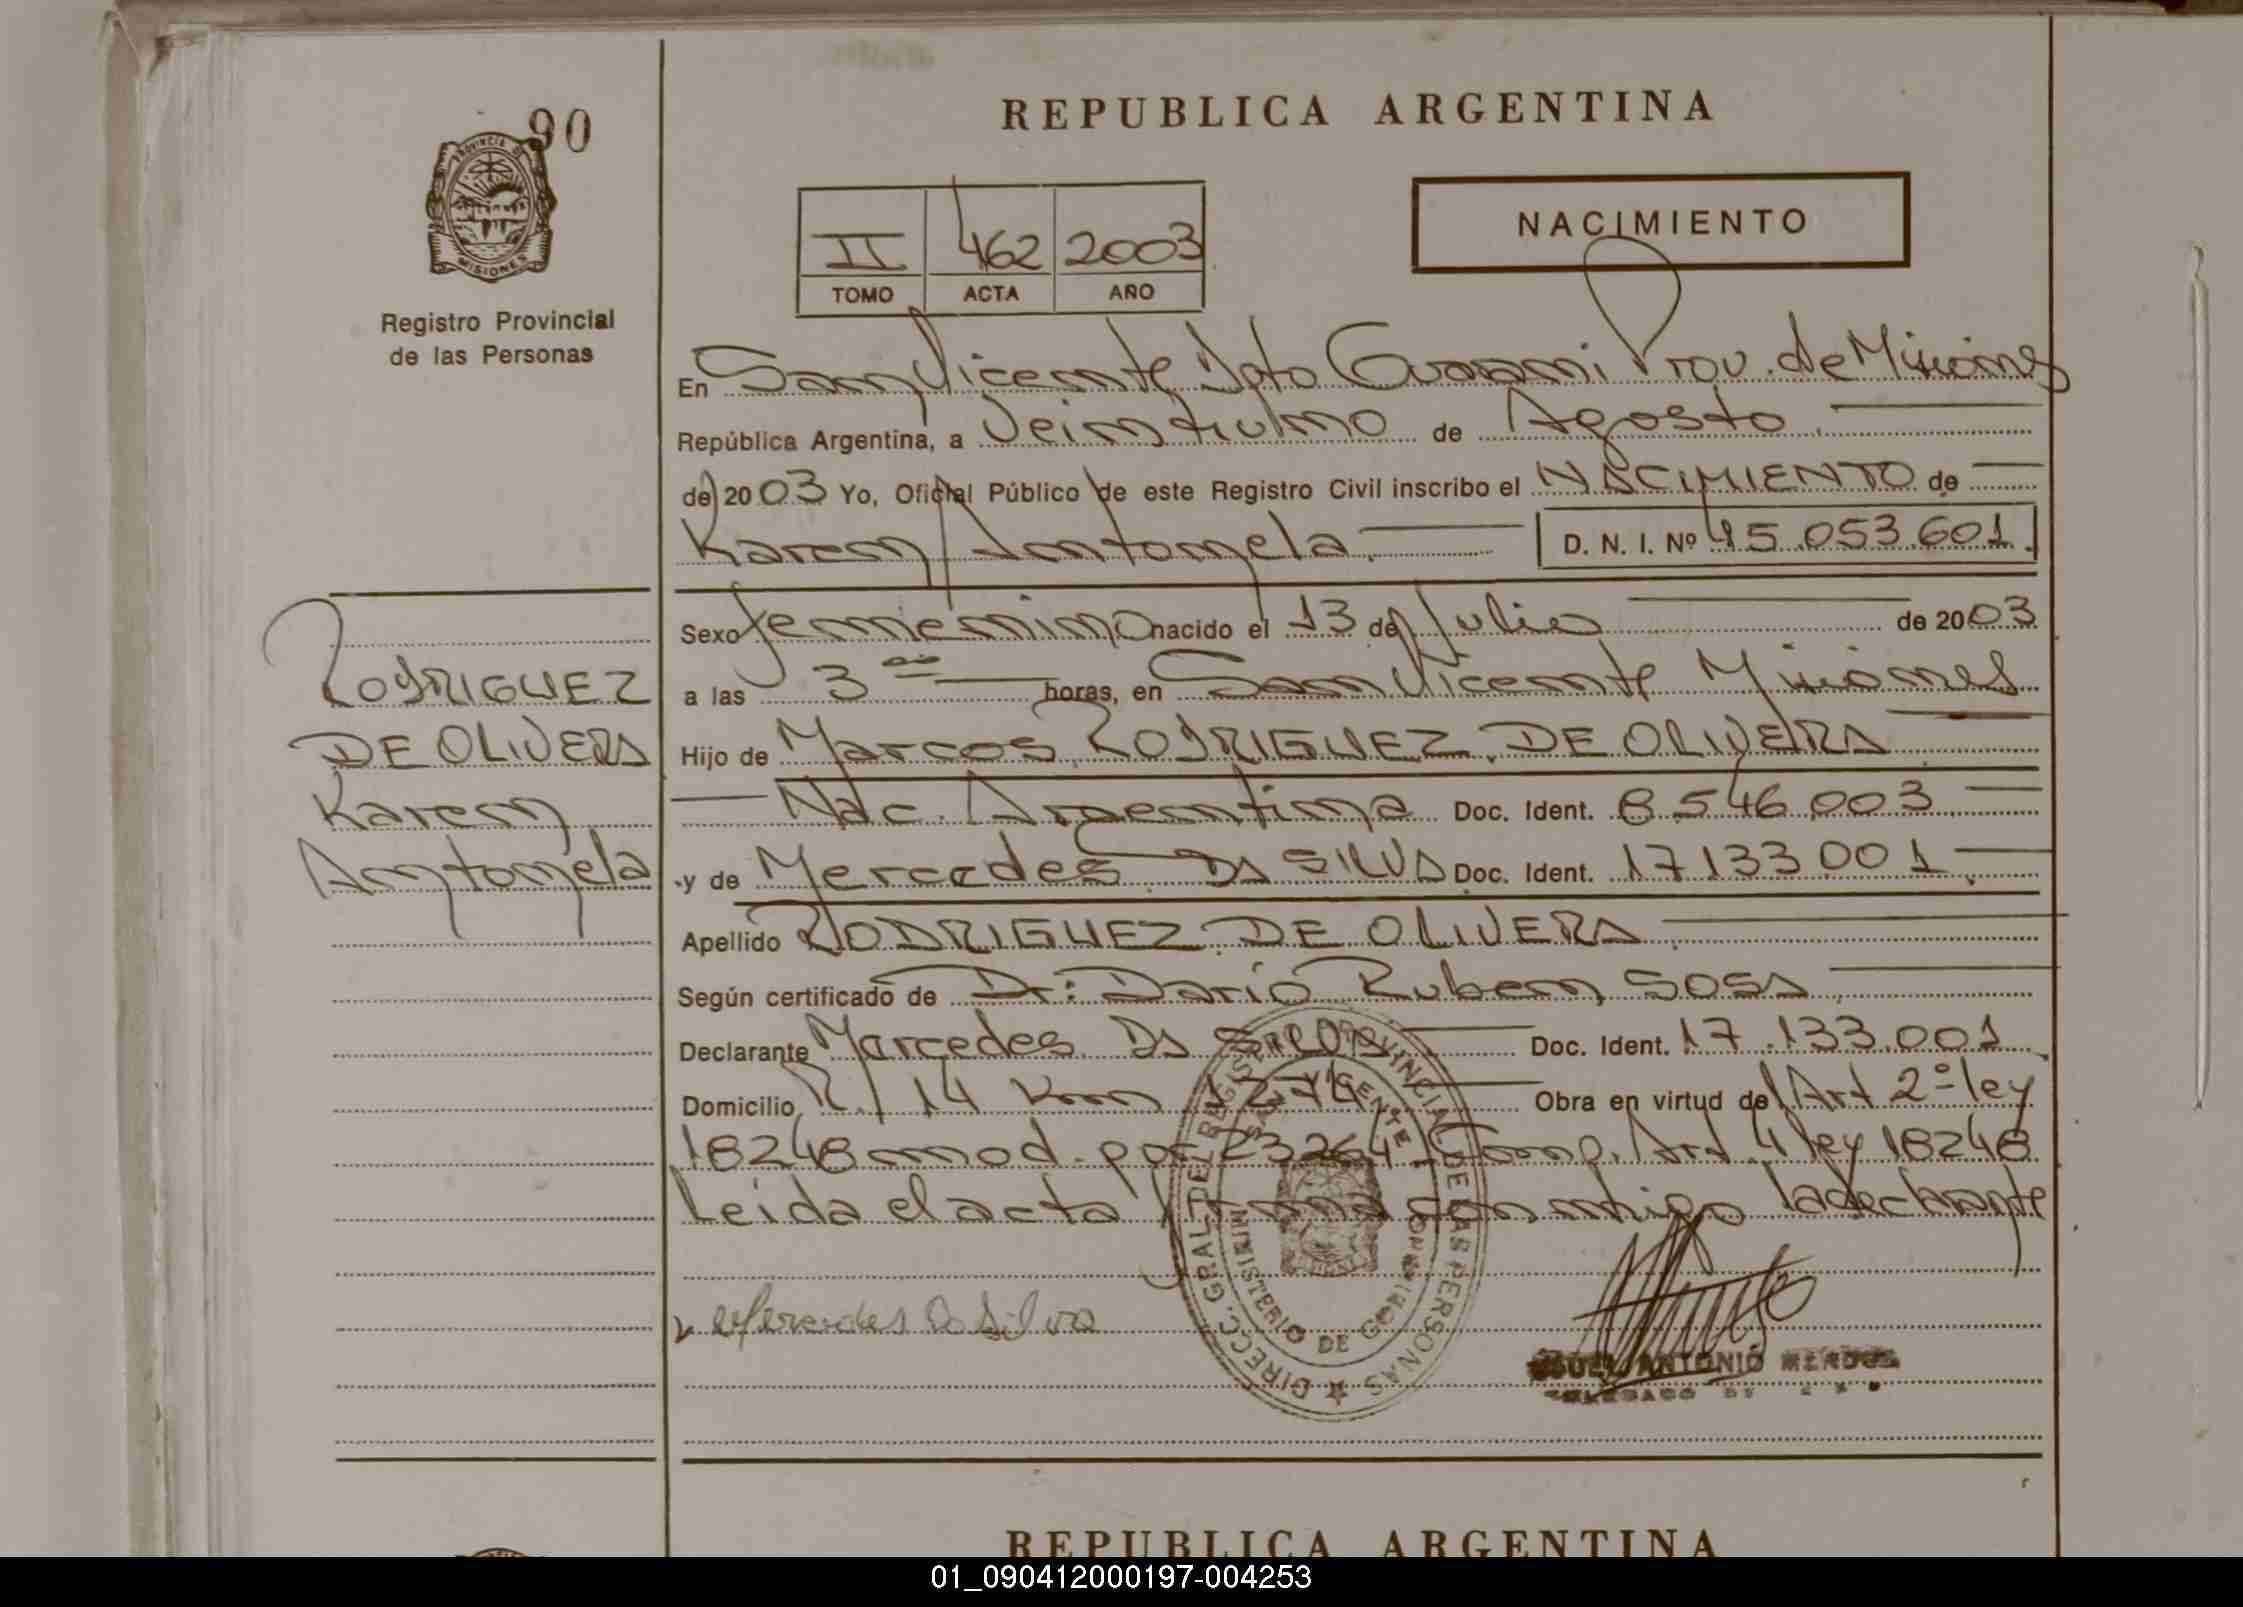 90
PROVINCIA DE
MISIONES
Registro Provincial
de las Personas
REPUBLICA ARGENTINA
NACIMIENTO
II 462 2003
TOMO ACTA AÑO
En San Vicente Dpto Guarani Prov. de Misiones
República Argentina, a Veintiuno de Agosto
de 2003 Yo, Oficial Público de este Registro Civil inscribo el NACIMIENTO de
Karen Antonela D. N. I. Nº 45.053.601
Sexo femenino nacido el 13 de Julio de 2003
a las 3 horas, en San Vicente Misiones
Hijo de Marcos RODRIGUEZ DE OLIVERA
Nac. Argentina Doc. Ident. 8.546.003
y de Mercedes DA SILVA Doc. Ident. 17.133.001
Apellido RODRIGUEZ DE OLIVERA
Según certificado de Dr: Dario Ruben SOSA
Declarante Marcedes DA SILVA Doc. Ident. 17.133.001
Domicilio R/14 Km 1274 Obra en virtud del Art 2º ley
18248 mod. por 23264 Comp. Art 4 ley 18248
Leida el acta firma conmigo la declarante
RODRIGUEZ
DE OLIVERA
Karen
Antonela
Mercedes Da Silva
DIRECC. GRAL. DEL REGISTRO PROVINCIAL DE LAS PERSONAS
SAN VICENTE
MINISTERIO DE GOBIERNO
ANTONIO
REPUBLICA ARGENTINA
01_090412000197-004253